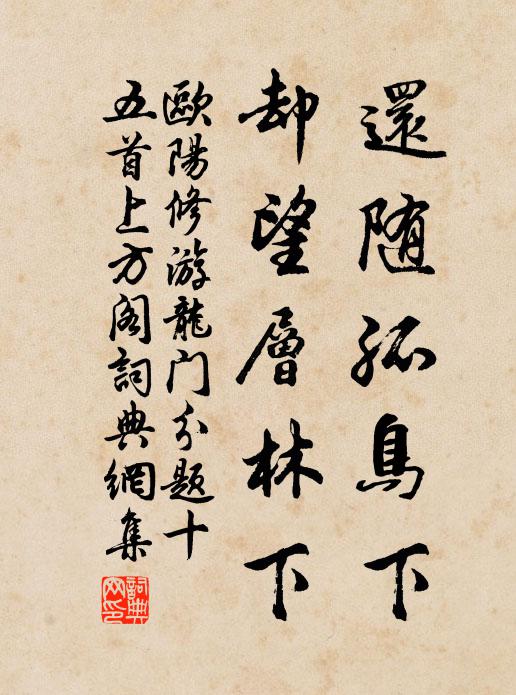 還随孤鳥下
却望層林下
歐陽修游龍门分題十
五首上方阁詞典網集
詞典
网印